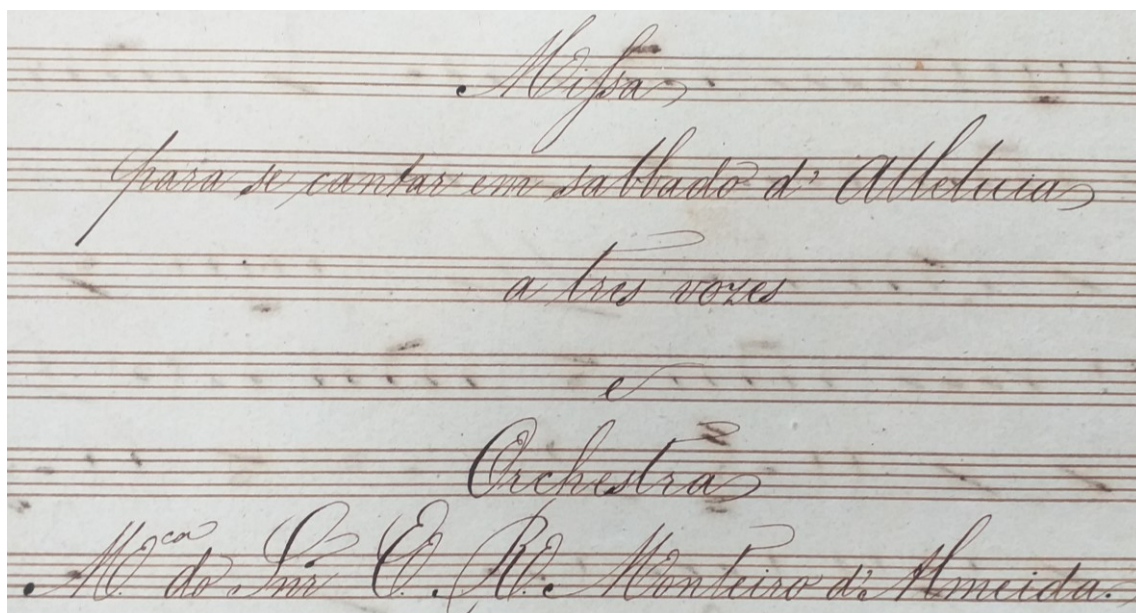 Missa
para se cantar em sabbado d' Alleluia
a tres vozes
e
Orchestra
M.ca do Snr E. R. Monteiro d'Almeida.